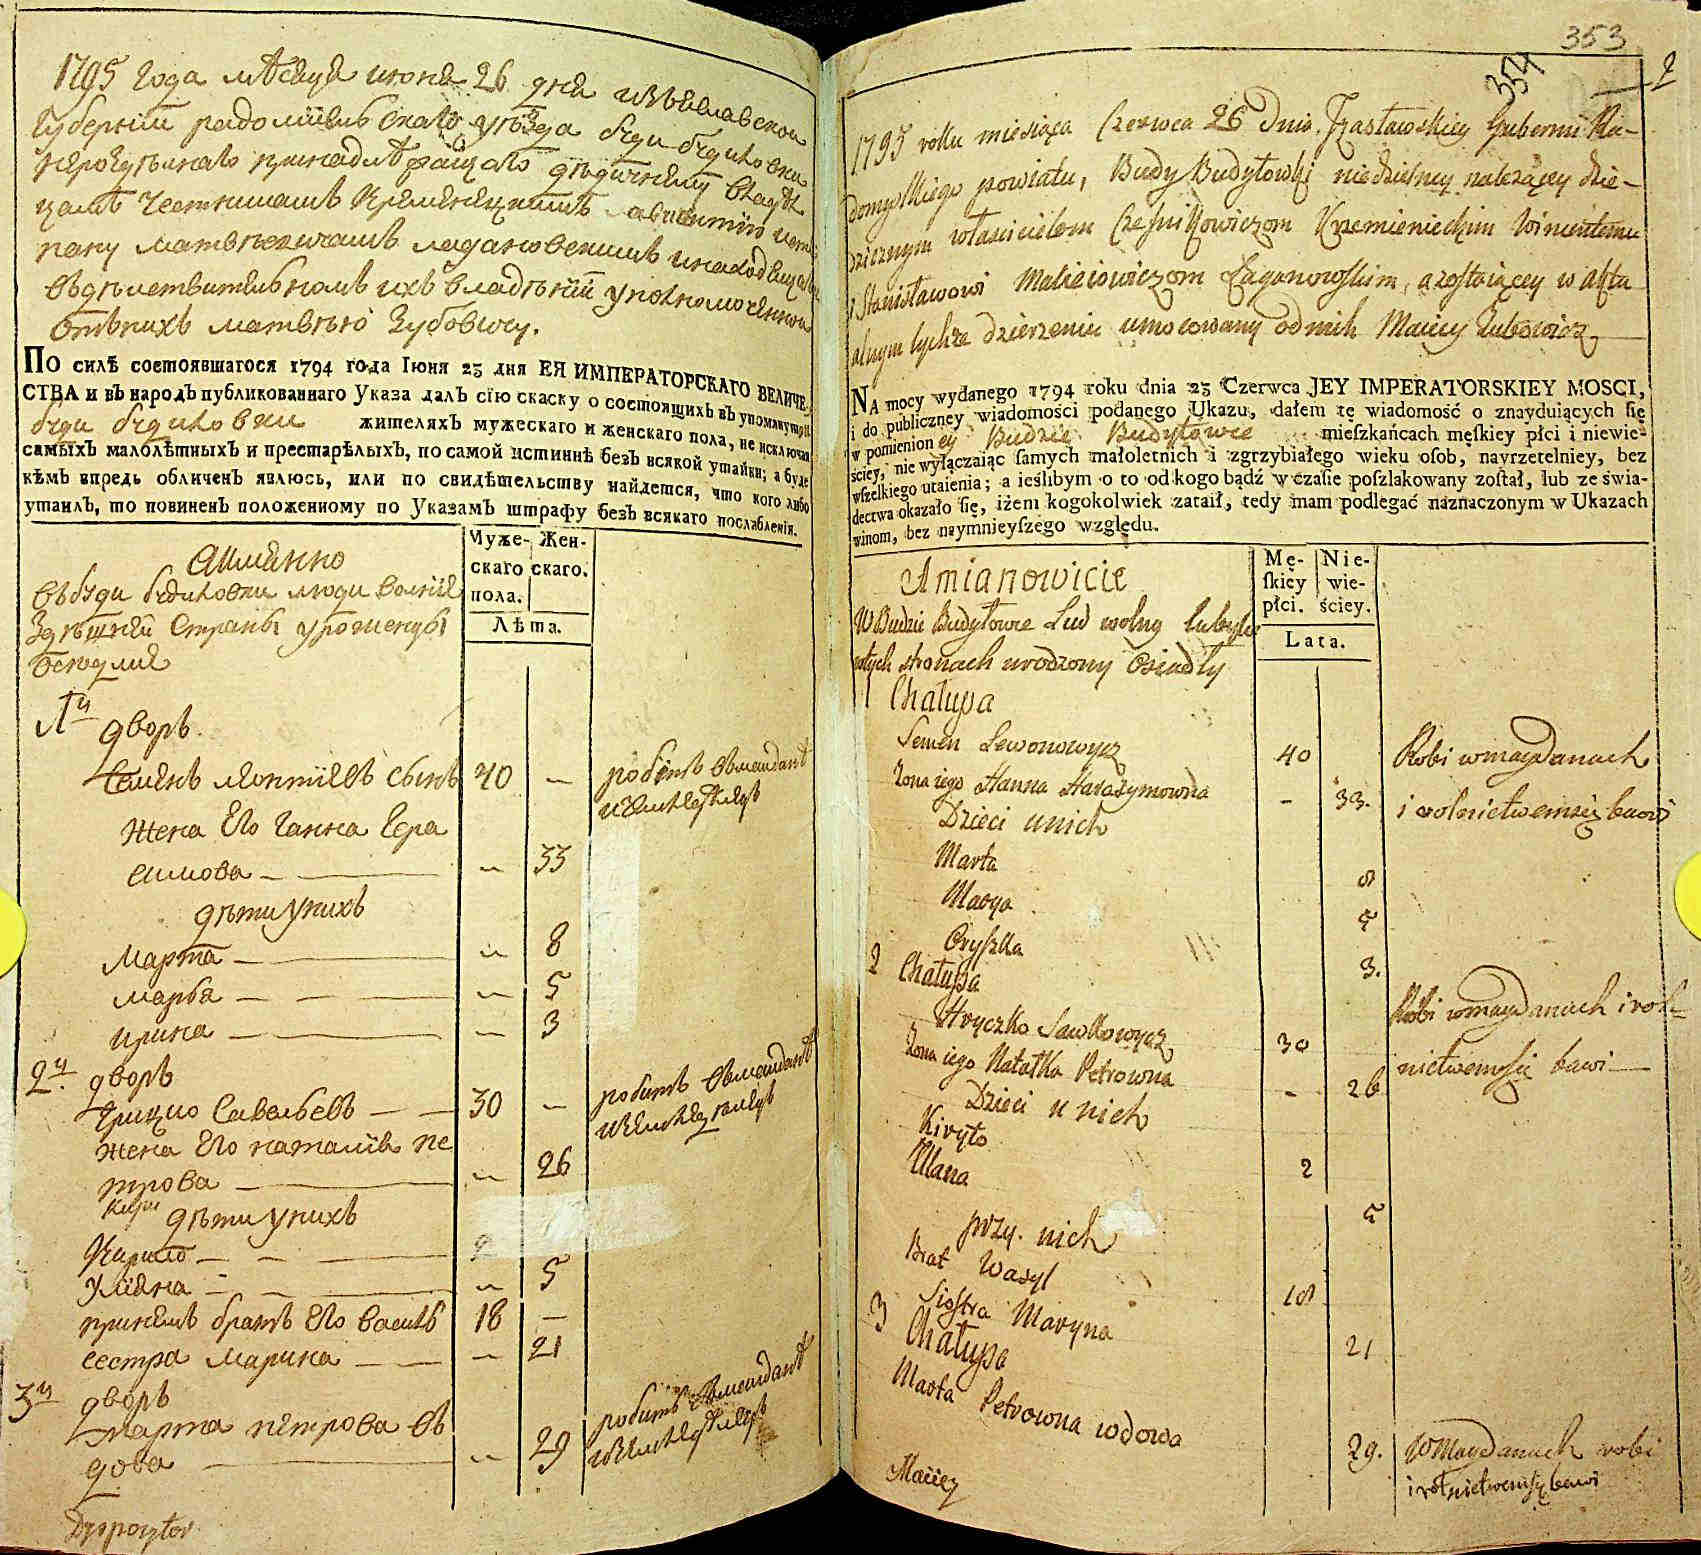 1795 года мѣсяця июня 26 дня изъяславской
Губернии радомишльскаго уѣзда буди будиловки
нероздѣльнаго принадлежащаго дѣдичному владѣ
Матвѣевичамъ
въдѣйствительномъ ихъ владѣнии уполномоченной
отънихъ матвѣю Зубовичу.
ПО силѣ состоявшагося 1794 года Іюня 23 дня ЕЯ ИМПЕРАТОРСКАГО ВЕЛИЧЕ-
СТВА и въ народъ публикованнаго Указа далъ сїю скаску о состоящихъ въ упомянутой
буди будиловки жителяхъ мужескаго и женскаго пола, не исключая
самыхъ малолѣтныхъ и престарѣлыхъ, по самой истиннѣ безъ всякой утайки; а буде
кѣмъ впредь обличенъ явлюсь, или по свидѣтельству найдется, что кого либо
утаилъ, то повиненъ положенному по Указамъ штрафу безъ всякаго послабленія.
Муже-скаго пола. Жен-скаго.
Лѣта.
Аимянно
въбуди будиловки люди волнїе
Здѣшнѣй Страны уроженцы
1й дворъ
Семенъ Леонтїевъ сынъ 40 —
жена Его Ганна Гера
симова — 33
дѣти унихъ
Марта — 8
марья — 5
ирина — 3
2й дворъ
Грицко Савельевъ 30 —
жена Его наталия пе
трова — 26
дѣти унихъ
Кирило — 2
Улїяна — 5
принемъ братъ Его василь 18 —
сестра марина — 21
3й дворъ
марта петрова въ
дова — 29
Dyspozytor
353
354
2
1795 roku miesiąca Czerwca 26 Dnia Izasławskiey Gubernii Ra-
domyslkiego powiatu, Budy Budyłowki niedzielney należącey dzie-
dzicznym właścicielom Cześnikowiczom Krzemienieckim Wincentemu
i Stanisławowi Maciejowiczom Łaganowskim, azostaiącey w aktu
alnym tychże dzierzeniu umocowany od nich Maciey Zubowicz
NA mocy wydanego 1794 roku dnia 23 Czerwca JEY IMPERATORSKIEY MOSCI,
i do publiczney wiadomości podanego Ukazu, dałem tę wiadomość o znayduiących się
w pomienioney Budzie Budyłowce mieſzkańcach męſkiey płci i niewie-
ściey, nie wyłączaiąc ſamych małoletnich i zgrzybiałego wieku oſob, nayrzetelniey, bez
wſzelkiego utaienia; a ieślibym o to od kogo bądź w czaſie poſzlakowany zoſtał, lub ze świa-
dectwa okazało ſię, iżem kogokolwiek zataił, tedy mam podlegać naznaczonym w Ukazach
winom, bez naymnieyſzego względu.
Mę-ſkiey płci. Nie-wie-ściey.
Lata.
Amianowicie
W Budzie Budyłowce Lud wolny
wtych stronach urodzony Osiadły
Chałupa
Semen Lewonowycz 40 Robi wmaydanach
Żona iego Hanna Harasymowna - 33. i rolnictwemsię bawi
Dzieci unich
Marta 8
Marya 5
Oryszka 3.
2 Chałupa
Hryczko Sawkowycz 30 Robi wmaydanach i rol-
Żona iego Natałka Petrowna - 26 nictwemsię bawi
Dzieci u nich
Kiryło 2
Ulana 5
przy nich
Brat Wasyl 18
Siostra Maryna 21
3 Chałupa
Marta Petrowna wdowa 29. W Maydanach robi
i rolnictwemsię bawi
Maciey